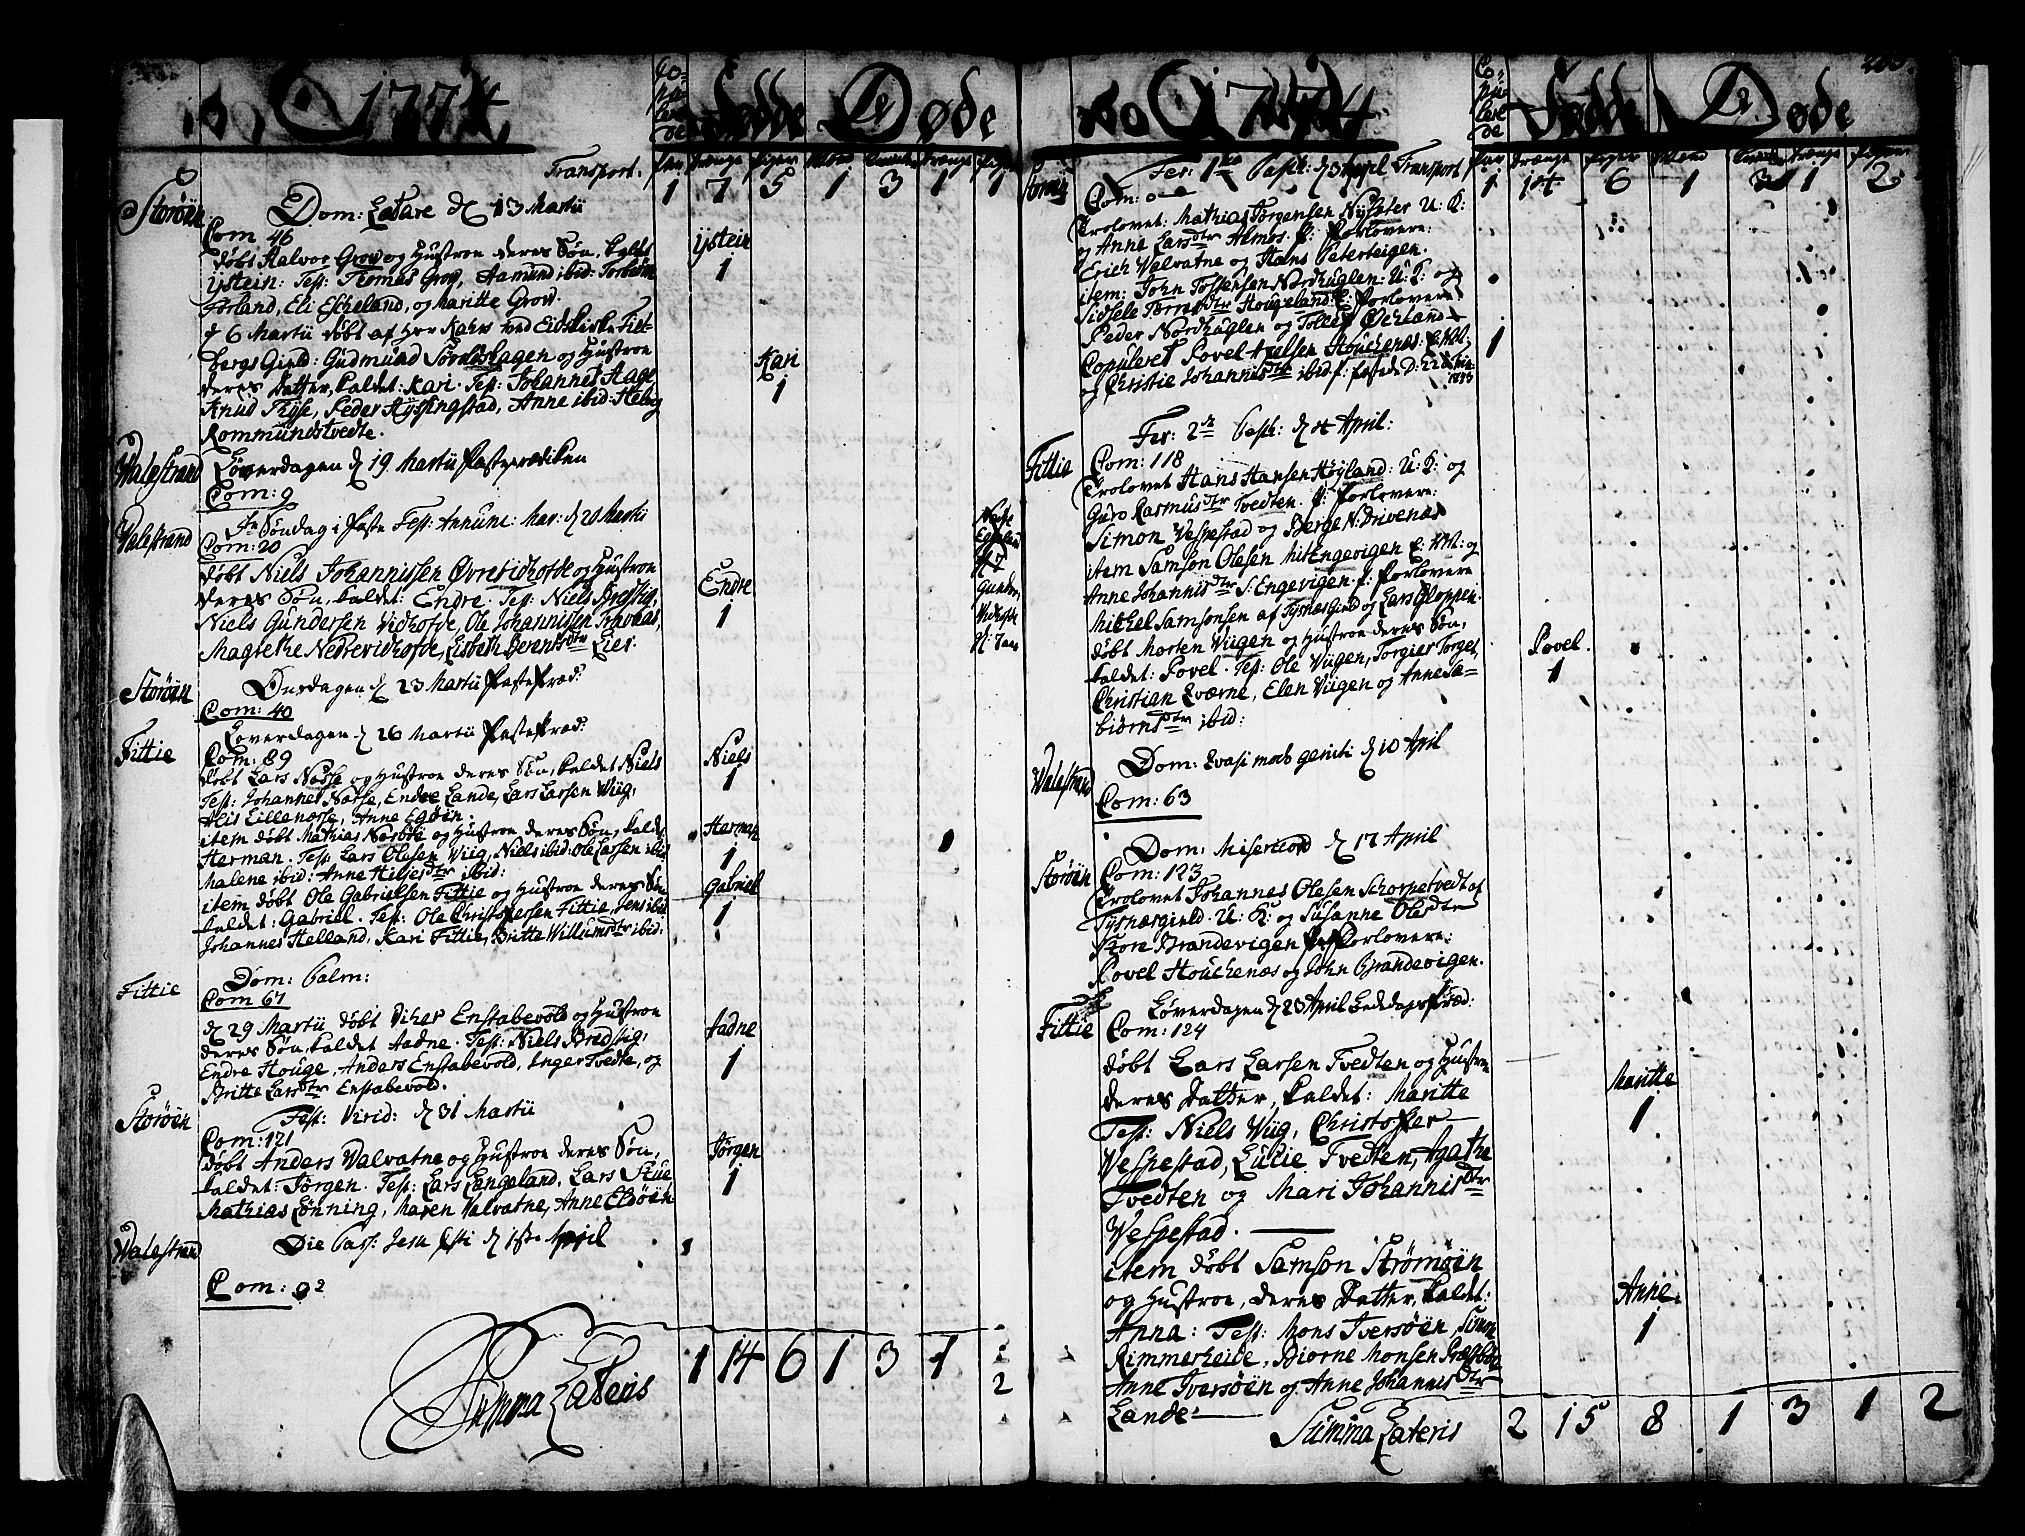 Ao 1774
Copulerede
Fødde
De Døde
Transport.
Par Drænge Piger Mænd Quinder Drænge Piger
1 7 5 1 3 1 1
Storøen
Dom: Lætare d 13 Martii
Com 46
døbt Halvor Grov og Hustroe deres Søn, kaldt
Ÿstein: Test: Thomas Grov, Aamund ibid: Torbiørn
Førland, Eli Eskeland, og Maritte Grov.
d 6 Martii døbt af Hr Kahrs ved Eids Kirke Fiel-
bergs Gield: Gudmund Sørhushagen og Hustroe
deres Datter, kaldet: Kari. Test: Johannes Aage
Knud Thÿse, Peder Hÿssingstad, Anne ibid: Helvig
Rommundstvedte.
Ÿstein
1
Kari
1
Walestrand
Løverdagen d 19 Martii Fasteprædiken
Com: 9
Valestrand
3de Søndag i Faste Fest: Annunc: Mar: d 20 Martii
Com: 20
døbt Niels Johannissen Øvrevidhofde og Hustroe
deres Søn, kaldet: Endre. Test: Niels Bredstig,
Niels Gundersen Vidhofde, Ole Johannissen Frøvaas,
Magrethe Nedrevidhofde, Lisbeth Berentsdtr Eier.
Endre
1
Storøen
Onsdagen d 23 Martii FastePræd:
Com: 40
Fittie
Løverdagen d 26 Martii FastePræd:
Com: 89
døbt Lars Nasse og Hustroe deres Søn, kaldet Niels
Test: Johannes Nasse, Endre Lande, Lars Larsen Wiig,
Alis Lillenasse, Anne Egøen.
item døbt Mathias Nesbøe og Hustroe deres Søn, kaldt
Herman. Test: Lars Olesen Wiig, Niels ibid: Ole Larsen ibid
Malene ibid: Anne Hiljesdtr ibid:
item døbt Ole Gabrielsen Fittie og Hustroe deres Søn
kaldet: Gabriel. Test: Ole Christophersen Fittie, Jens ibid:
Johannes Helland, Kari Fittie, Britte Willumsdtr ibid:
Niels
1
Herman
1
Gabriel
1
1
Fittie
Dom: Palm:
Com 67
d 29 Martii døbt Viker Enstabevold og Hustroe
deres Søn, kaldet Aadne. Test: Niels Bredstig,
Endre Houge, Anders Enstabevold, Inger Tvedte, og
Britte Larsdtr Enstabevold.
Aadne
1
Storøen
Fest: Virid: d 31 Martii
Com: 121
døbt Anders Valvatne og Hustroe deres Søn,
kaldet: Jørgen. Test: Lars Langeland, Lars Stue
Mathias Lønning, Maren Valvatne, Anne Eldøen
Jørgen
1
Walestrand
Die Pass: Jesu Xsti d 1ste April
Com: 92
Summa Lateris
1 14 6 1 3 1 2
Ao 1774
Copulerede
Fødde
De Døde
Storøen
Fer: 1ma Pasch: d 3 April Transport
Par Drænge Piger Mænd Quinder Drænge Piger
1 14 6 1 3 1 2
Com: 0
Trolovet: Mathias Jørgensen Nÿsæter U: K:
og Anne Larsdtr Almos. P: Forlovere:
Erich Valvatne og Hans Peterteigen.
item: John Tollevsen Nordhuglen: U: K: og
Sidsele Tormodsdtr Hougeland: P: Forlovere
Peder Nordhuglen og Tollev Økland
Copuleret Povel Axelsen Houckenæs: E: M:
og Christie Johannisdtr ibid
1
Fittie
Fer: 2da Pasch: d 4 April:
Com: 118
Trolovet Hans Hansen Høÿland: U: K: og
Guro Rasmusdtr Tvedten. P: Forlovere:
Simon Vespestad og Børge N: Drivenæs
item Samson Olesen Mit Engevigen E: M: og
Anne Johannisdtr S: Engevigen. P: Forlovere
Mickel Samsonsen af Tysnæs Gield og Lars Gloppen.
døbt Morten Viigen og Hustroe deres Søn,
kaldet: Povel. Test: Ole Viigen, Torgier Torget,
Christian Kværne, Elen Viigen og Anne Sæ=
biørnsdtr ibid:
Povel
1
Walestrand
Dom: Qvasi modo geniti d 10 April
Com: 63
Storøen
Dom: Misericord d 17 April
Com: 123
Trolovet Johannes Olesen Schorpetvedt af
Tysnæsgield. U: K: og Susanne Olesdtr
Store Brandevigen P: Forlovere:
Povel Houckenæs og John Brandevigen.
Fittie
Løverdagen d 23 April BeddagsPræd:
Com: 124
døbt Lars Larsen Tvedten og Hustroe
deres Datter, kaldet: Maritte
Test: Niels Wiig, Christopher
Vespestad, Lucie Tvedten, Agathe
Tvedten og Mari Johannisdtr
Vespestad.
item døbt Samson Strømøen
og Hustroe, deres Datter, kaldet:
Anna: Test: Mons Iversøen, Simon
Rimmereide, Biørne Monsen
Anne Iversøen og Anne Johannisdtr
Lande.
Maritte
1
Anne
1
Summa Lateris
2 15 8 1 3 1 2